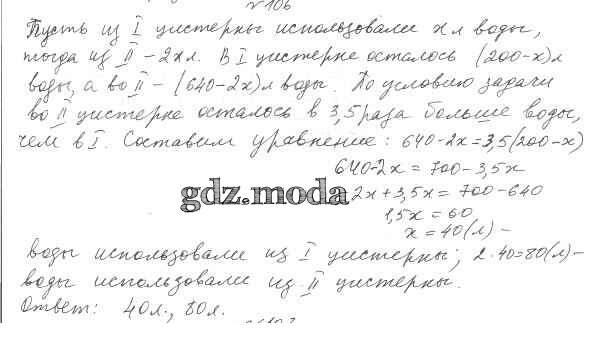 №106
Пусть из I цистерны использовали x л воды,
тогда из II – 2x л. В I цистерне осталось (200-x) л
воды, а во II – (640-2x) л воды. По условию задачи
во II цистерне осталось в 3,5 раза больше воды,
чем в I. Составим уравнение: 640-2x=3,5(200-x)
640-2x = 700-3,5x
-2x+3,5x = 700-640
gdz.moda
1,5x = 60
x = 40 (л) –
воды использовали из I цистерны; 2·40=80(л) –
воды использовали из II цистерны.
Ответ: 40л., 80л.